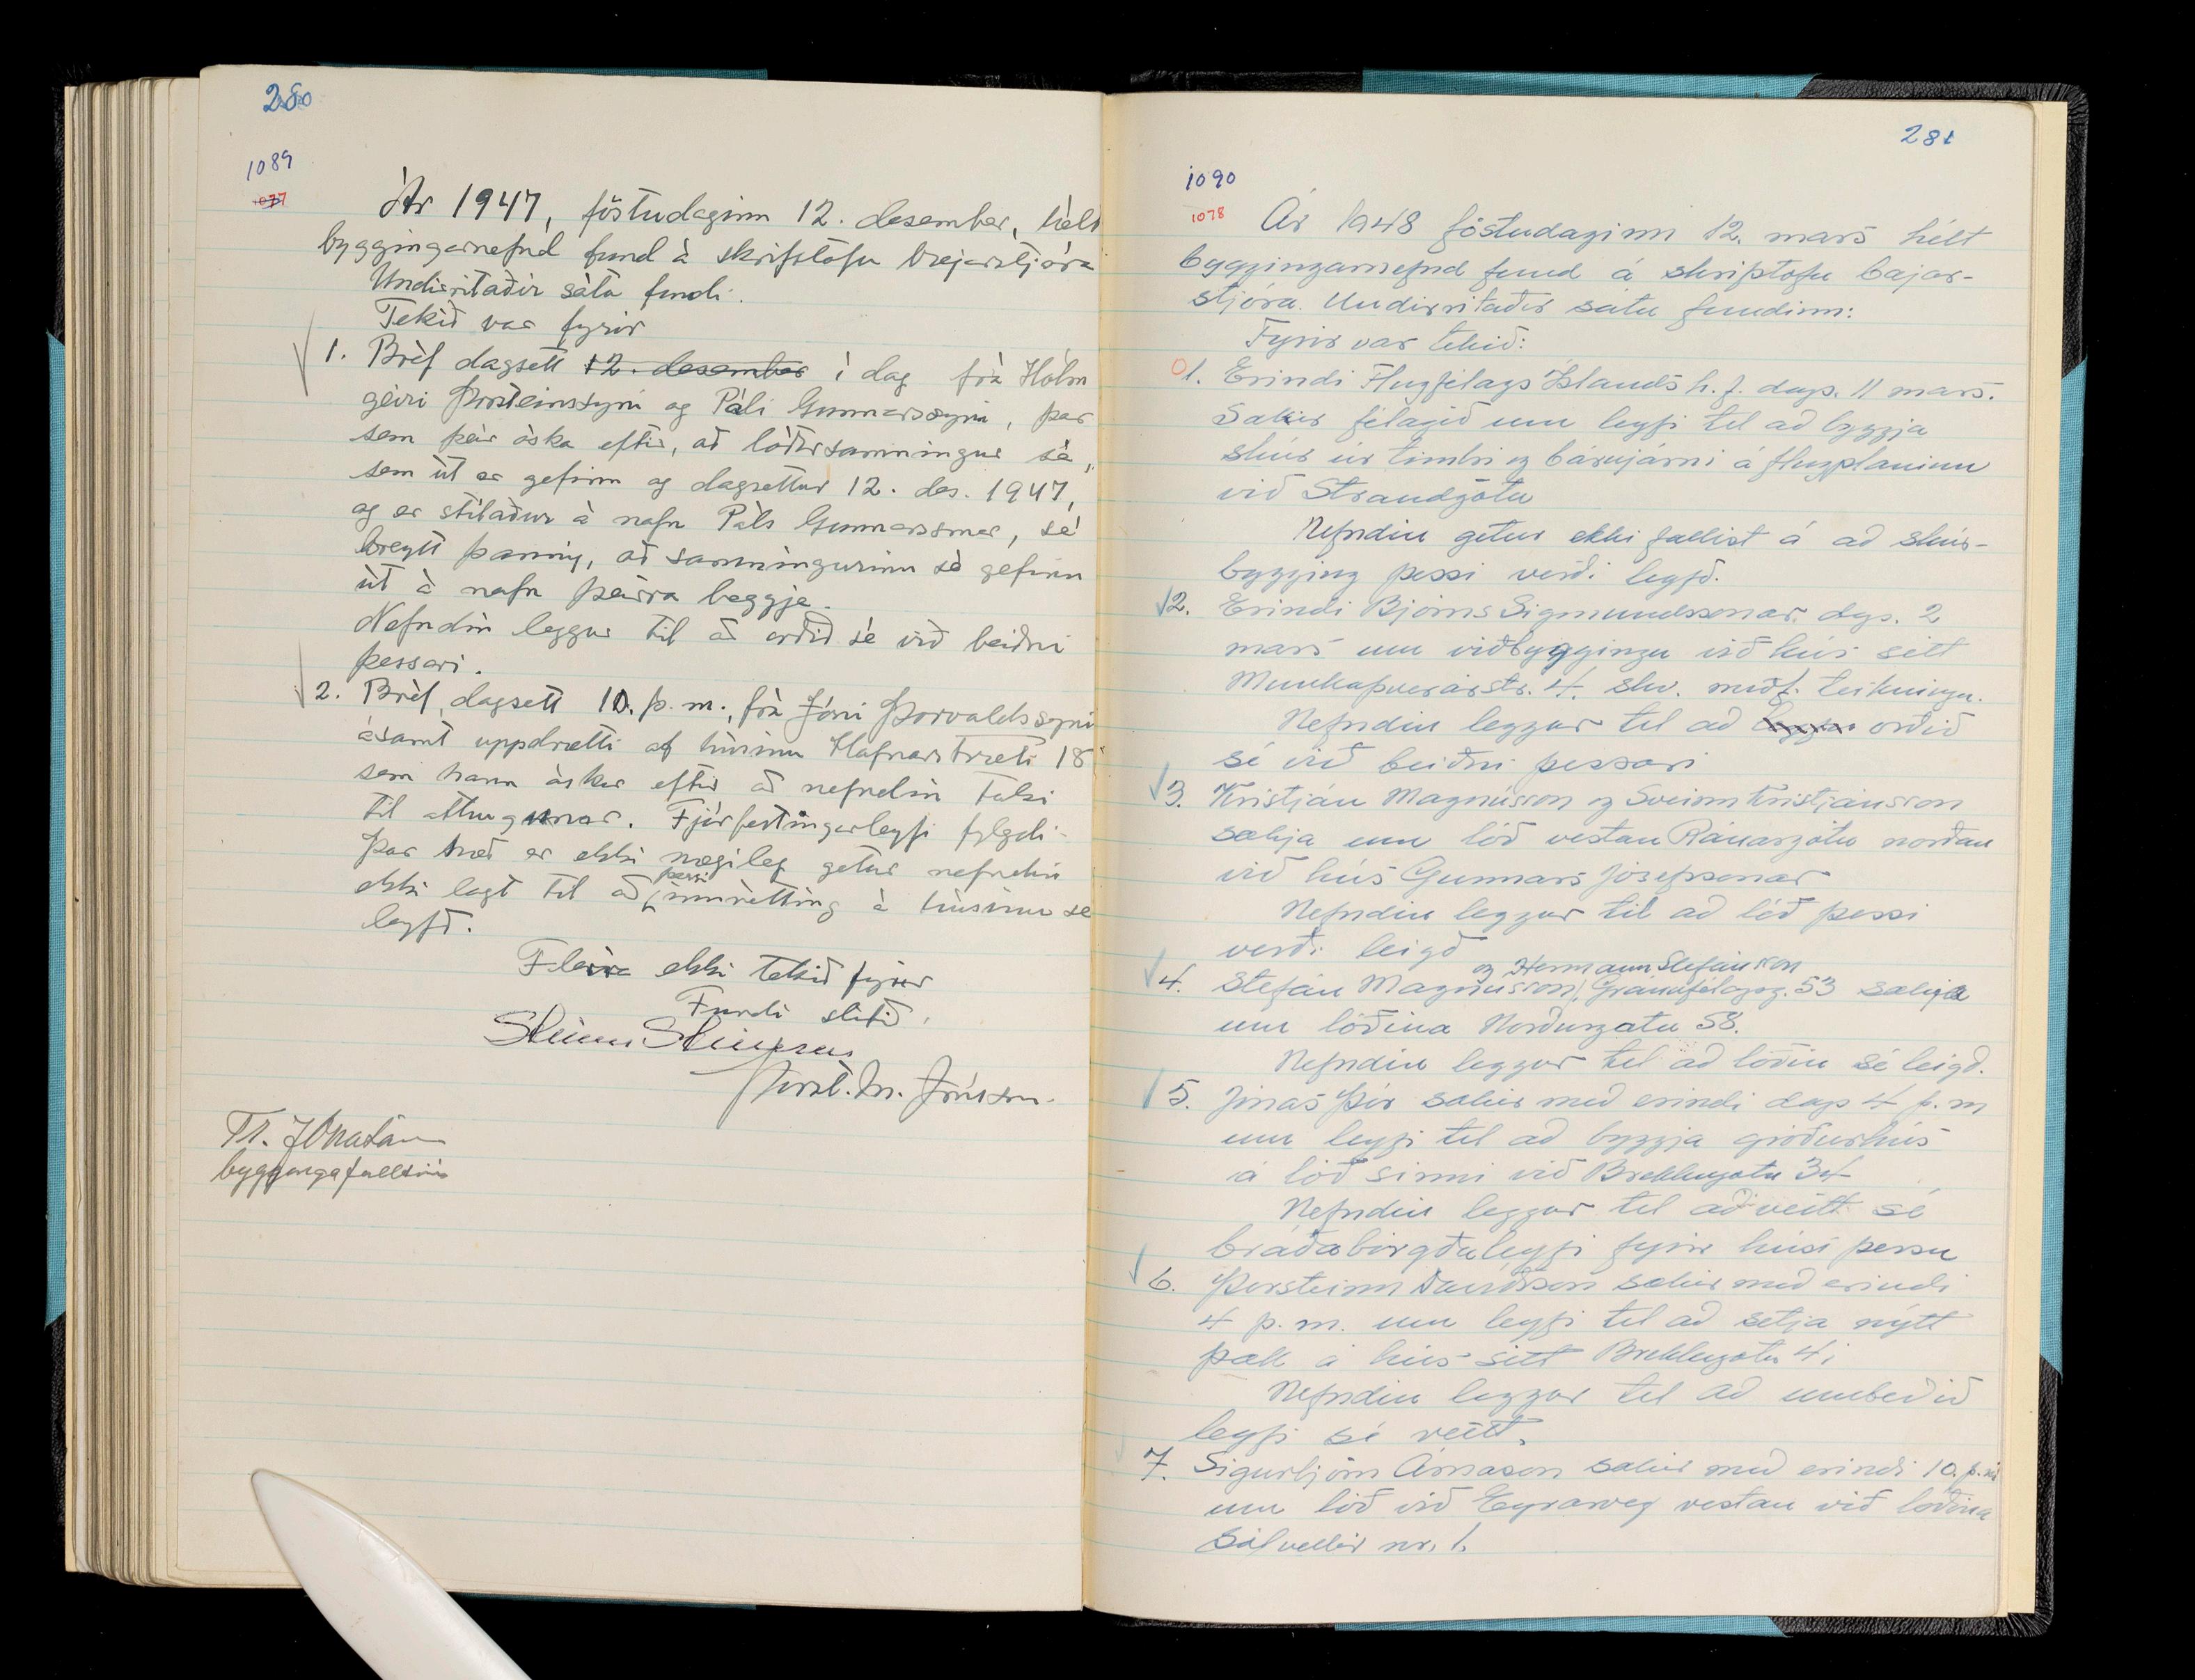 280
1089
1077
Ár 1947, föstudaginn 12. desember, hélt
byggingarnefnd fund á skrifstofu bæjarstjóra
Undirritaðir sátu fundi.
Tekið var fyrir
1. Bréf dagsett 12. desember í dag frá Hólm
geiri Þorsteinssyni og Páli Gunnarssyni, þar
sem þeir óska eftir, að lóðarsamningur sá,
sem út er gefinn og dagsettur 12. des. 1947,
og er stílaður á nafn Páls Gunnarssonar, sé
breytt þannig, að samningurinn sé gefinn
út á nafn þeirra beggja.
Nefndin leggur til að orðið sé við beiðni
þessari.
2. Bréf, dagsett 10. þ. m., frá Jóni Þorvaldssyni
ásamt uppdrætti af húsinu Hafnarstræti 18
sem hann óskar eftir að nefndin taki
til athugunar. Fjárfestingarleyfi fylgdi
Þar er ekki nægileg getur nefndin
ekki lagt til að þessi innrétting á húsinu sé
leyfð.
Fleira ekki tekið fyrir
Fundi slitið.
Steinn Steinsen
Þorst. M. Jónsson.
byggingafulltrúi
281
1090
1078
Ár 1948 föstudaginn 12. mars hélt
byggingarnefnd fund á skriptofu bæjar-
stjóra. Undirritaðir sátu fundinn:
Fyrir var tekið:
1. Erindi Flugfélags Íslands h.f. dags. 11 mars.
Sækir félagið um leyfi til að byggja
skúr úr timbri og bárujárni á flugplaninu
við Strandgötu
Nefndin getur ekki fallist á að skúr-
bygging þessi verði leyfð.
2. Erindi Björns Sigmundssonar dags. 2
mars um viðbyggingu við hús sitt
Munkaþverárstr. 4. skv. meðf. teikningu.
Nefndin leggur til að orðið
sé við beiðni þessari
3. Kristján Magnússon og Sveinn Kristjánsson
sækja um lóð vestan Ránargötu norðan
við hús Gunnars Jósepssonar
Nefndin leggur til að lóð þessi
verði leigð
og Hermann Stefánsson
4. Stefán Magnússon, Gránufélagsg. 53 sækja
um lóðina Norðurgatu 58.
Nefndin leggur til að lóðin sé leigð.
5. Jónas Þór sækir með erindi dags 4 þ.m
um leyfi til að byggja gróðurhús
á lóð sinni við Brekkugötu 34
Nefndin leggur til að veitt sé
bráðabirgðaleyfi fyrir húsi þessu
6. Þorsteinn Davíðsson sækir með erindi
4 þ.m. um leyfi til að setja nýtt
þak á hús sitt Brekkugötu 41
Nefndin leggur til að umbeðið
leyfi sé veitt.
7. Sigurbjörn Árnason sækir með erindi 10. þ.m
um lóð við Eyrarveg vestan við lóðina
Sólvellir nr. 1.